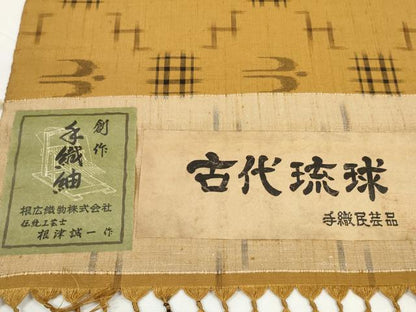 創作
手織紬
根広織物株式会社
伝統工芸士
根津誠一 作
古代琉球
手織民芸品